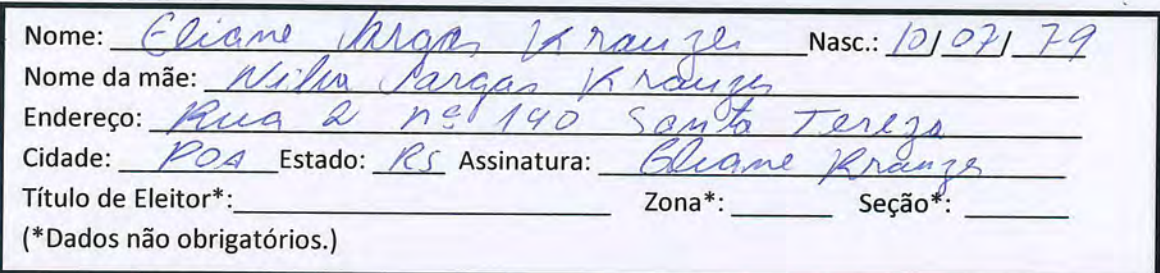 Nome: Eliane Vargas Krauzer Nasc.: 10/07/79
Nome da mãe: Nilva Vargas Krauzer
Endereço: Rua 2 nº 190 Santa Tereza
Cidade: POA Estado: RS Assinatura: Eliane Krauzer
Título de Eleitor*: Zona*: Seção*:
(*Dados não obrigatórios.)